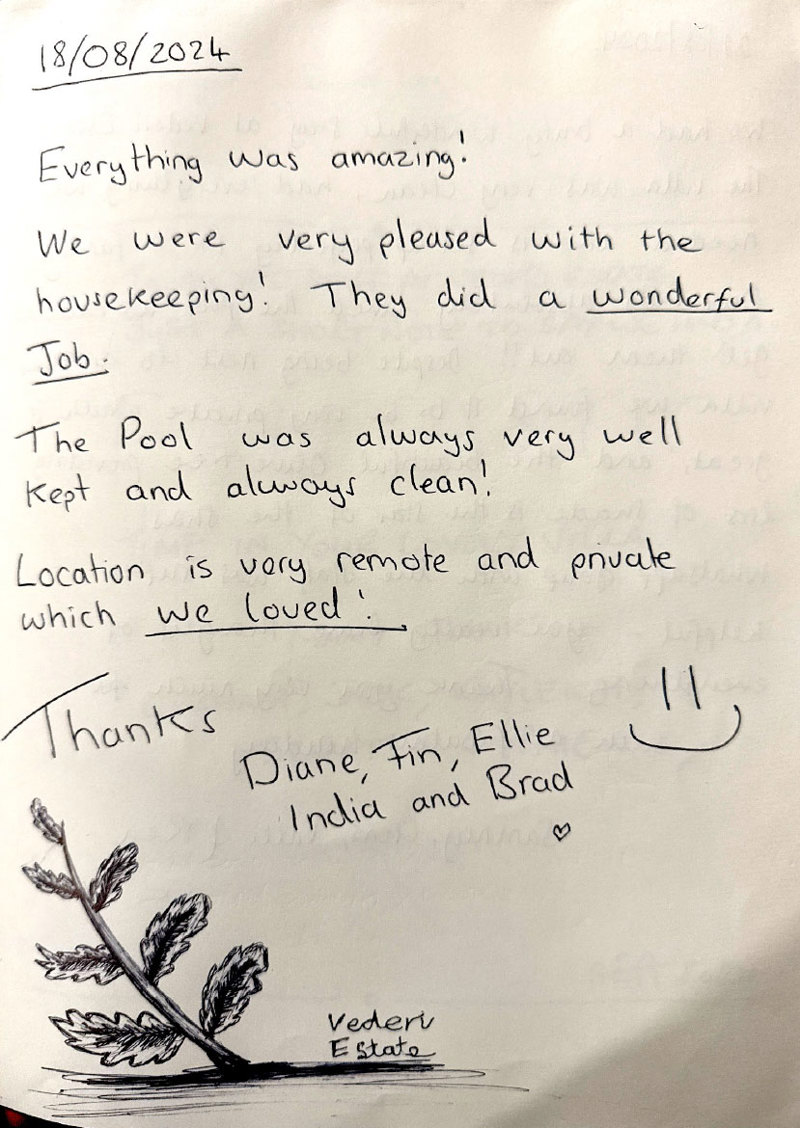 18/08/2024
Everything was amazing!
We were very pleased with the
housekeeping! They did a wonderful
Job.
The Pool was always very well
kept and always clean!
Location is very remote and private
which we loved!
Thanks
Diane, Fin, Ellie
India and Brad
Vederi
Estate